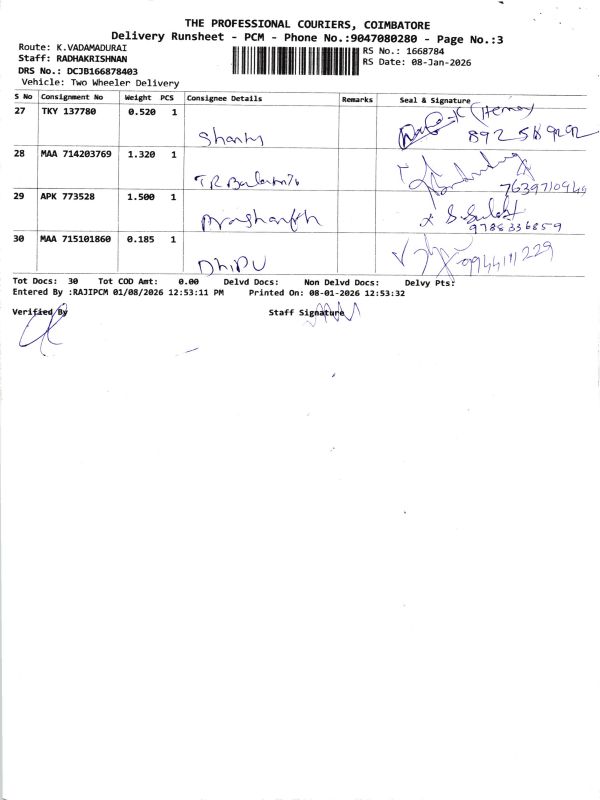 THE PROFESSIONAL COURIERS, COIMBATORE
Delivery Runsheet - PCM - Phone No.:9047080280 - Page No.:3
Route: K.VADAMADURAI
RS No.: 1668784
Staff: RADHAKRISHNAN
RS Date: 08-Jan-2026
DRS No.: DCJB166878403
Vehicle: Two Wheeler Delivery
S No Consignment No Weight PCS Consignee Details Remarks Seal & Signature
27 TKY 137780 0.520 1
28 MAA 714203769 1.320 1
7639710949
29 APK 773528 1.500 1 Prashanth
9788336859
30 MAA 715101860 0.185 1 DHIPU
Tot Docs: 30 Tot COD Amt: 0.00 Delvd Docs: Non Delvd Docs: Delvy Pts:
Entered By :RAJIPCM 01/08/2026 12:53:11 PM Printed On: 08-01-2026 12:53:32
Verified By Staff Signature